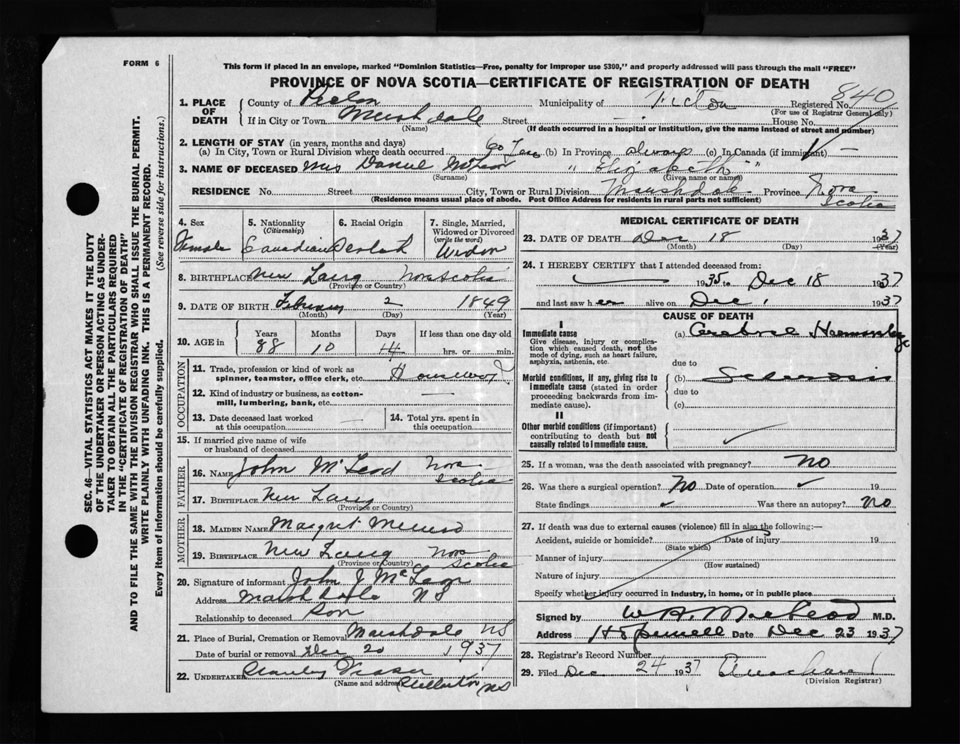 FORM 6
This form if placed in an envelope, marked "Dominion Statistics—Free, penalty for improper use $300," and properly addressed will pass through the mail "FREE"
PROVINCE OF NOVA SCOTIA—CERTIFICATE OF REGISTRATION OF DEATH
840
1. PLACE OF DEATH
County of Pictou Municipality of Pictou Registered No.
(For use of Registrar General only)
If in City or Town Marshdale Street — House No.
(Name) (If death occurred in a hospital or institution, give the name instead of street and number)
2. LENGTH OF STAY (in years, months and days)
(a) In City, Town or Rural Division where death occurred 60 Years (b) In Province always (c) In Canada (if immigrant) —
3. NAME OF DECEASED Mrs Daniel McLean " Elizabeth "
(Surname) (Given name or names)
RESIDENCE No. Street City, Town or Rural Division Marshdale Province Nova Scotia
(Residence means usual place of abode. Post Office Address for residents in rural parts not sufficient)
4. Sex
Female
5. Nationality
(Citizenship)
Canadian
6. Racial Origin
Scotch
7. Single, Married, Widowed or Divorced
(write the word)
Widow
8. BIRTHPLACE New Lairg Nova Scotia
(Province or Country)
9. DATE OF BIRTH February 2 1849
(Month) (Day) (Year)
10. AGE
Years Months Days If less than one day old
88 10 14 hrs. or min.
OCCUPATION
11. Trade, profession or kind of work as spinner, teamster, office clerk, etc. Housework
12. Kind of industry or business, as cotton-mill, lumbering, bank, etc. —
13. Date deceased last worked at this occupation —
14. Total yrs. spent in this occupation
15. If married give name of wife or husband of deceased
FATHER
16. NAME John McLeod
17. BIRTHPLACE New Lairg Nova Scotia
(Province or Country)
MOTHER
18. MAIDEN NAME Margret
19. BIRTHPLACE New Lairg Nova Scotia
(Province or Country)
20. Signature of informant John J McLean
Address Marshdale N S
Relationship to deceased Son
21. Place of Burial, Cremation or Removal Marshdale NS
Date of burial or removal Dec 20 1937
22. UNDERTAKER Stanley Fraser
(Name and address) Stellarton NS
MEDICAL CERTIFICATE OF DEATH
23. DATE OF DEATH Dec 18 1937
(Month) (Day) (Year)
24. I HEREBY CERTIFY that I attended deceased from:
1935 to Dec 18 1937
and last saw her alive on Dec 1 1937
CAUSE OF DEATH
I
Immediate cause
Give disease, injury or complication which caused death, not the mode of dying, such as heart failure, asphyxia, asthenia, etc.
(a) Cerebral Haemorrhage
due to
Morbid conditions, if any, giving rise to immediate cause (stated in order proceeding backwards from immediate cause).
(b) Sclerosis
due to
(c)
II
Other morbid conditions (if important) contributing to death but not causally related to immediate cause.
25. If a woman, was the death associated with pregnancy? No
26. Was there a surgical operation? No Date of operation 19
State findings Was there an autopsy? No
27. If death was due to external causes (violence) fill in also the following:—
Accident, suicide or homicide? Date of injury 19
(State which)
Manner of injury
(How sustained)
Nature of injury
Specify whether injury occurred in industry, in home, or in public place
Signed by W A MacLeod M.D.
Address Hopewell Date Dec 23 1937
28. Registrar's Record Number
29. Filed Dec 24 1937
(Division Registrar)
SEC. 46—VITAL STATISTICS ACT MAKES IT THE DUTY
OF THE UNDERTAKER OR PERSON ACTING AS UNDERTAKER TO OBTAIN ALL THE PARTICULARS REQUIRED
IN THE "CERTIFICATE OF REGISTRATION OF DEATH"
AND TO FILE THE SAME WITH THE DIVISION REGISTRAR WHO SHALL ISSUE THE BURIAL PERMIT.
WRITE PLAINLY WITH UNFADING INK. THIS IS A PERMANENT RECORD.
Every item of information should be carefully supplied. (See reverse side for instructions.)